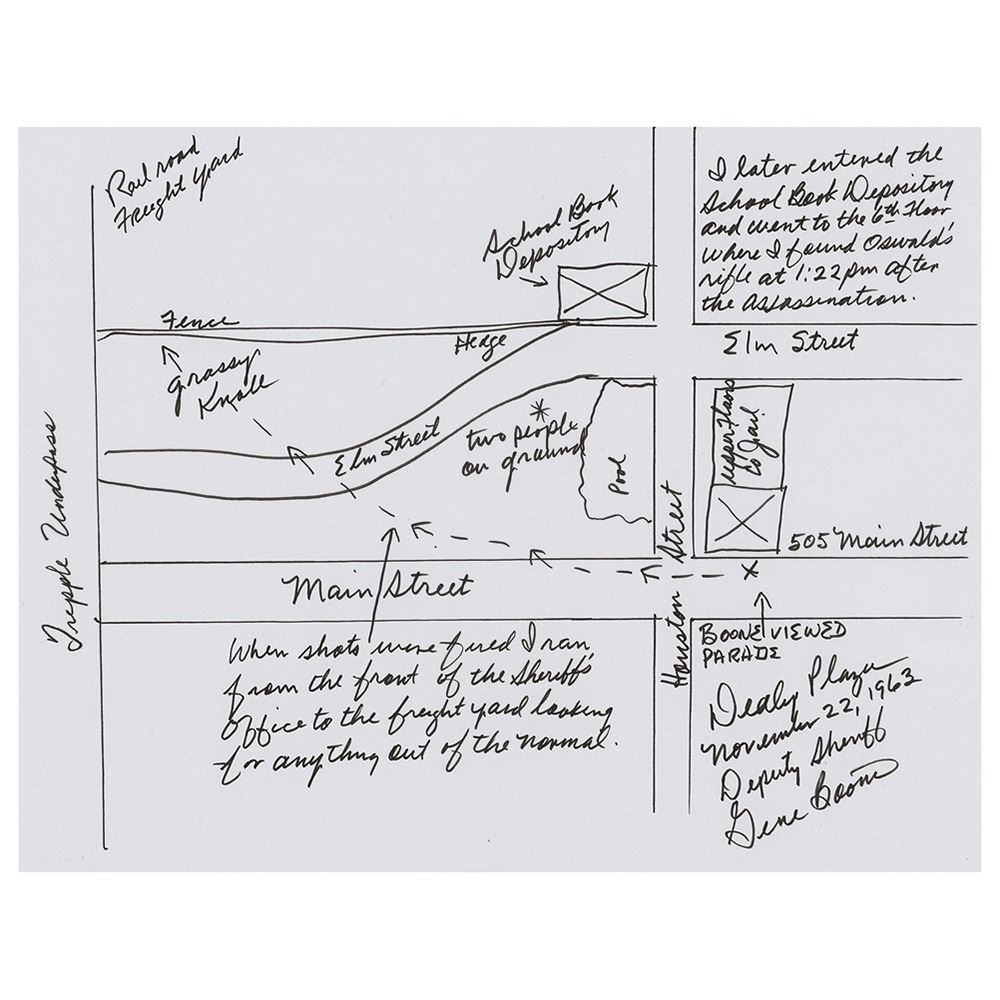 Railroad
Freight yard
School Book
Depository
I later entered the
School Book Depository
and went to the 6th Floor
where I found Oswald's
rifle at 1:22pm after
the Assassination.
Fence
Hedge
Elm Street
grassy
Knoll
Elm Street
two people
on ground
Pool
upper floors
Co Jail
505 Main Street
Tripple Underpass
Main Street
Houston Street
When shots were fired I ran
from the front of the Sheriff's
Office to the freight yard looking
for anything out of the normal.
BOONE VIEWED
PARADE
Dealy Plaza
November 22, 1963
Deputy Sheriff
Gene Boone